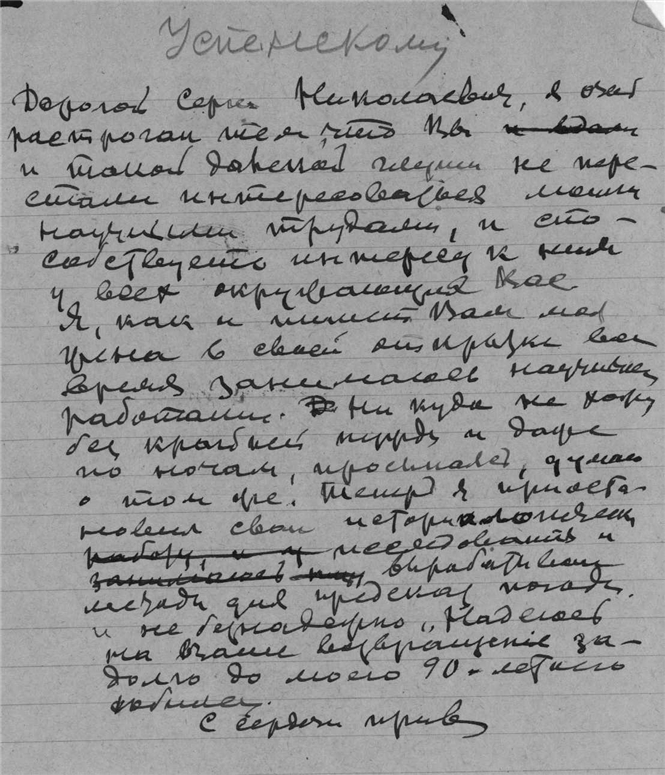 Успенскому
Дорогой Серг. Николаевич, я очень
растроган тем, что Вы и вдали
и такой далекой глуши не пере-
стали интересоваться моими
научными трудами, и спо-
собствуете интересу к ним
у всех окружающих Вас
Я, как и пишет Вам моя
жена в своей открытке все
время занимаюсь научными
работами. Никуда не хожу
без крайней нужды и даже
по ночам, просыпаясь, думаю
о том же. Теперь я приоста-
новил свои
работу, и я исследовать и
занимаюсь вырабатываю
методы для предсказ погоды.
и не безнадежно. Надеюсь
на Ваше возвращение за-
долго до моего 90-летнего
юбилея.
С сердечн привет